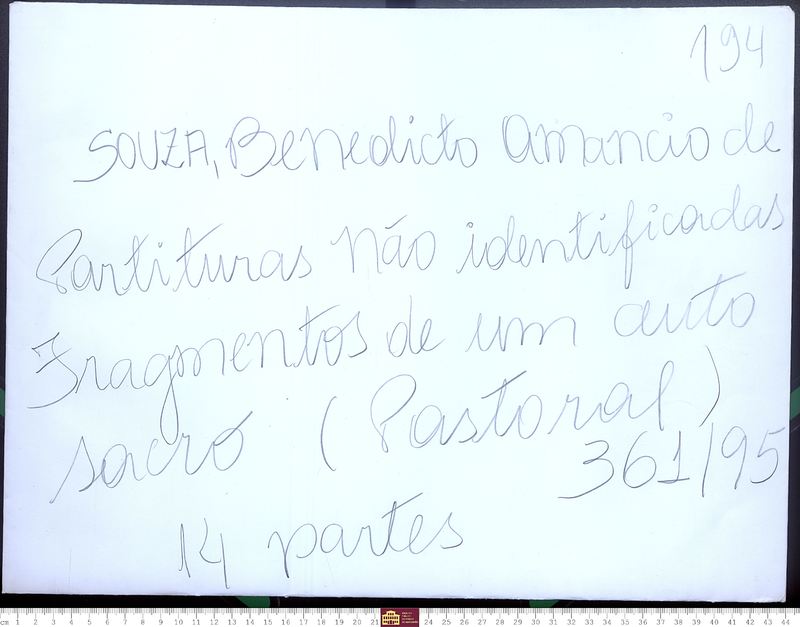 194
SOUZA, Benedicto Amancio de
Partituras não identificadas
Fragmentos de um auto
sacro (Pastoral)
361/95
14 partes
cm 1 2 3 4 5 6 7 8 9 10 11 12 13 14 15 16 17 18 19 20 21 24 25 26 27 28 29 30 31 32 33 34 35 36 37 38 39 40 41 42 43 44